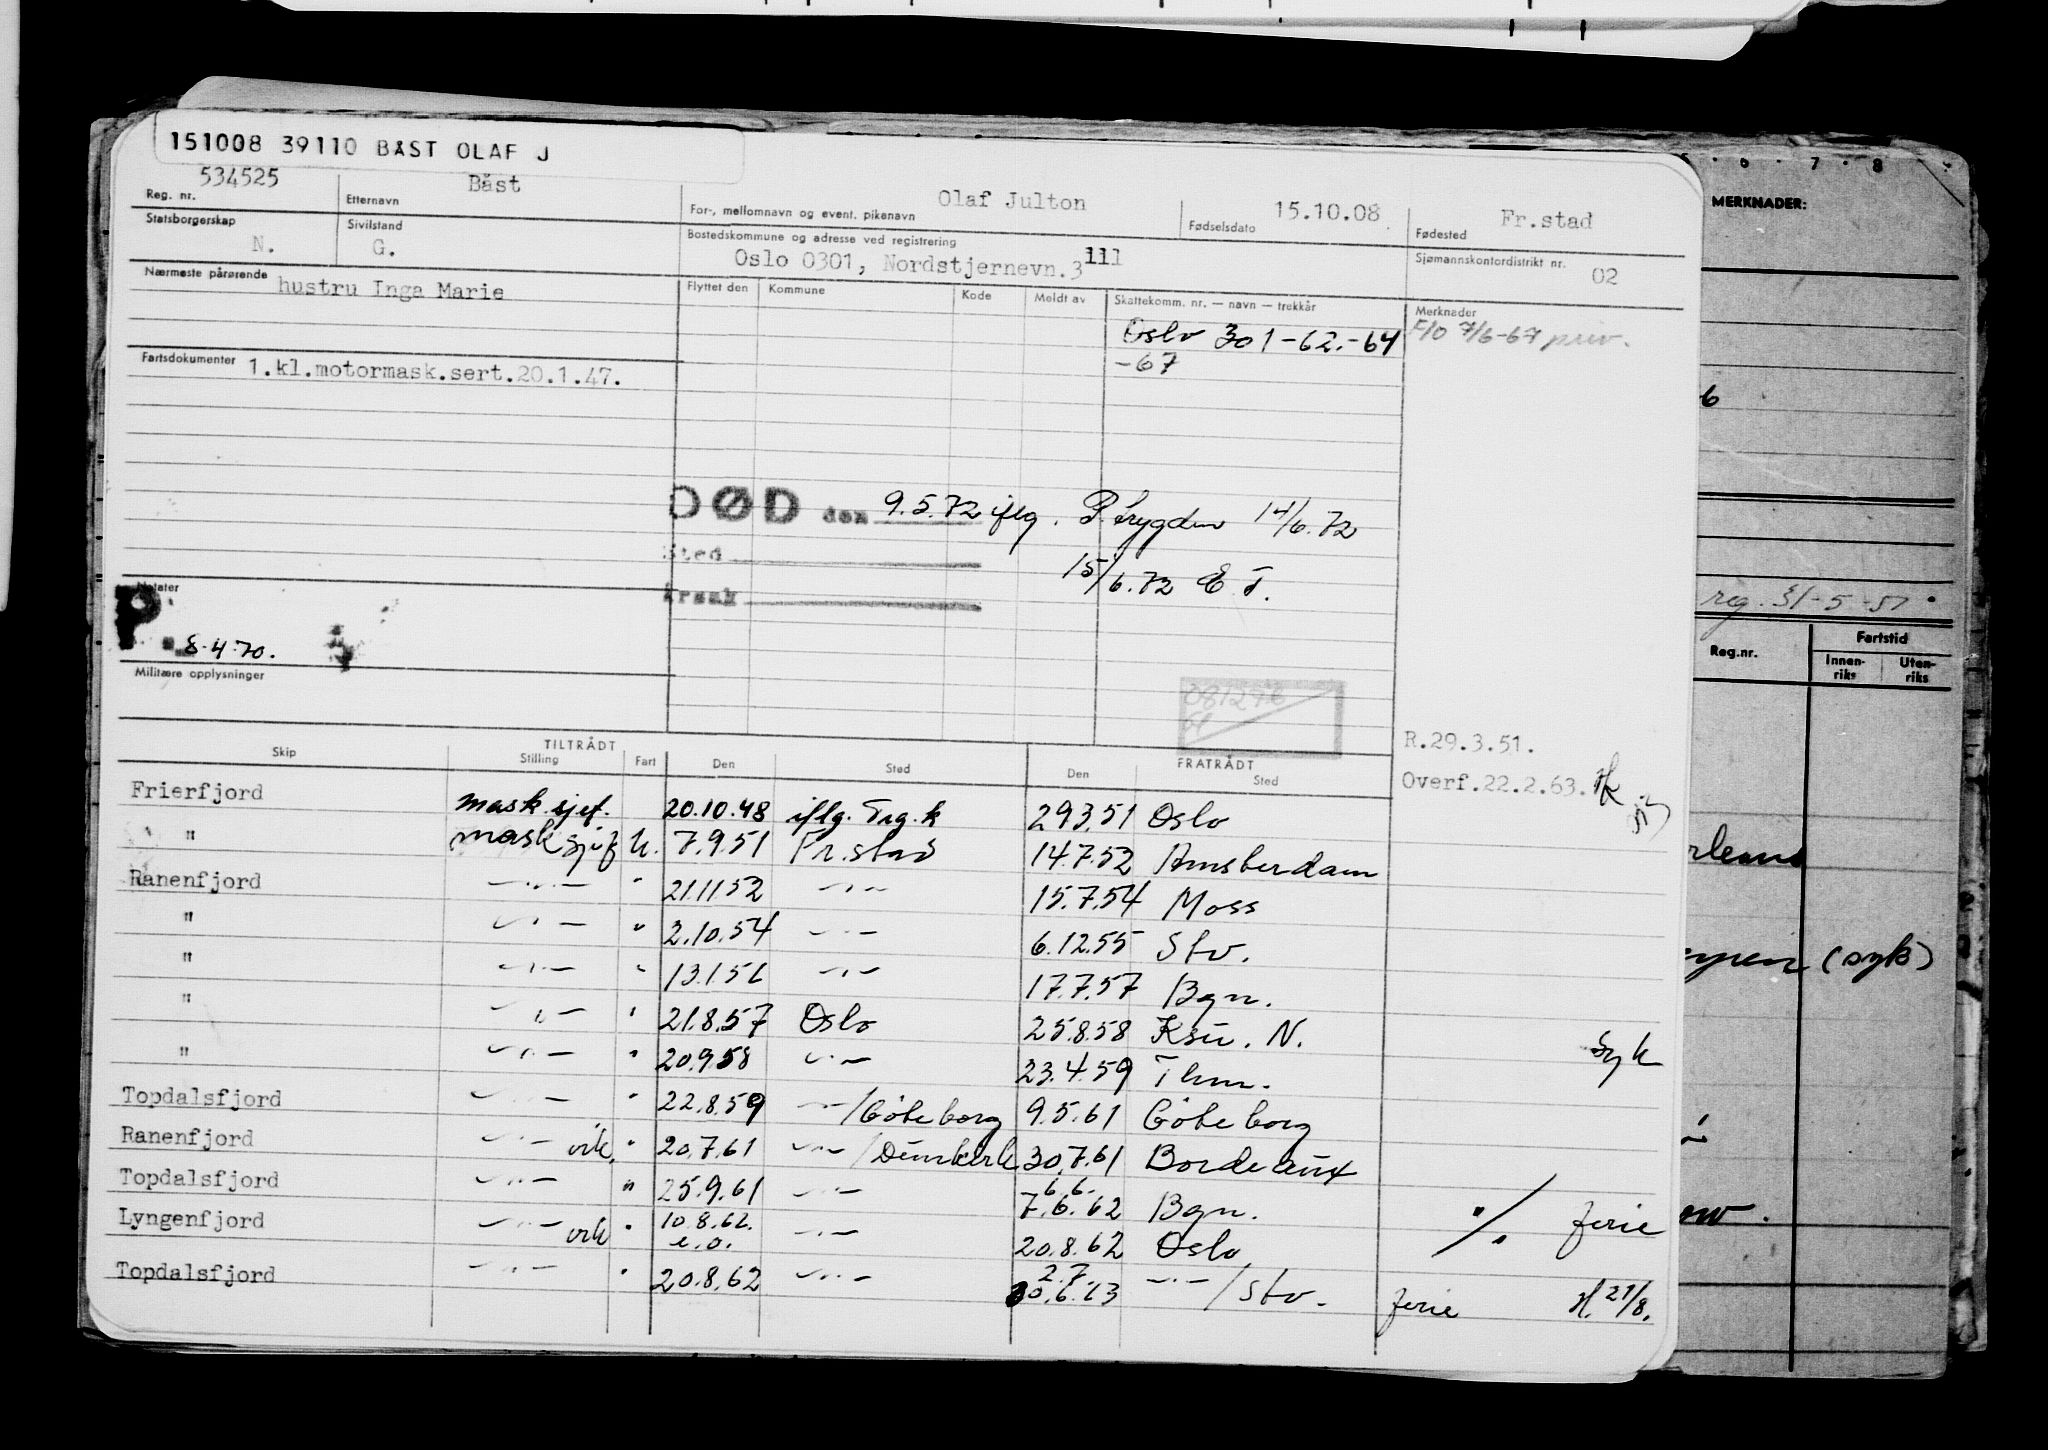 151008 39110 BÅST OLAF J
534525 Båst Olaf Julton 15.10.08 Fr.stad
Reg. nr. Etternavn For-, mellomnavn og event. pikenavn Fødselsdato Fødested
Statsborgerskap Sivilstand Bostedskommune og adresse ved registrering Sjømannskontordistrikt nr.
N. G. Oslo 0301, Nordstjernevn.3 111 02
Nærmeste pårørende hustru Inga Marie
Flyttet den Kommune Kode Meldt av Skattekomm. nr. — navn — trekkår Merknader
Oslo 301-62.-64 F/O 7/6-67 priv.
-67
Fartsdokumenter 1.kl.motormask.sert.20.1.47.
DØD den 9.5.72 iflg. P.trygden 14/6.72
Sted
Årsak 15/6.72 E.T.
Notater
P 8-4-70.
Militære opplysninger
R.29.3.51.
Overf.22.2.63.
TILTRÅDT FRATRÅDT
Skip Stilling Fart Den Sted Den Sted
Frierfjord mask.sjef. 20.10.48 iflg. Trg.k 29.3.51 Oslo
" mask sjef U. 7.9.51 Fr.stad 14.7.52 Amsterdam
Ranenfjord —"— " 21.11.52 —"— 15.7.54 Moss
" —"— " 2.10.54 —"— 6.12.55 Stv.
" —"— " 13.1.56 —"— 17.7.57 Bgn.
" —"— " 21.8.57 Oslo 25.8.58 Ksu. N. Syk
" —"— " 20.9.58 —"— 23.4.59 Thm.
Topdalsfjord —"— " 22.8.59 —"—/Göteborg 9.5.61 Göteborg
Ranenfjord —"— vik. " 20.7.61 —"—/Dunkerk 30.7.61 Bordeaux
Topdalsfjord —"— " 25.9.61 —"— 6.6. 7.6.62 Bgn. ferie
Lyngenfjord —"— vik " 10.8.62. e.o. —"— 20.8.62 Oslo
Topdalsfjord —"— " 20.8.62 —"— 2.7. 30.6.63 —"—/Stv. ferie 21/8.
6 7 8
MERKNADER:
6
reg. 31-5-51
Reg.nr. Fartstid
Innen-riks Uten-riks
(syk)